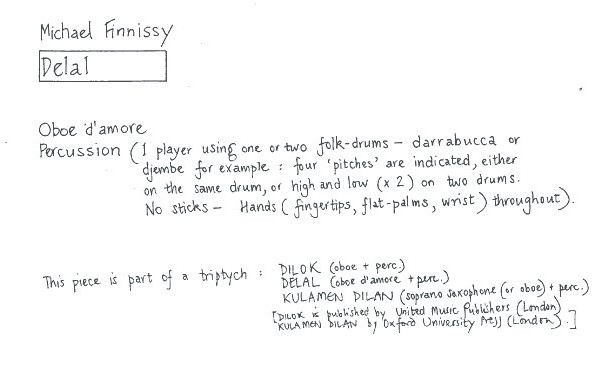 Michael Finnissy
Delal
Oboe d'amore
Percussion (1 player using one or two folk-drums – darrabucca or
djembe for example : four 'pitches' are indicated, either
on the same drum, or high and low (x 2) on two drums.
No sticks – Hands (fingertips, flat-palms, wrist) throughout).
This piece is part of a triptych : DILOK (oboe + perc)
DELAL (oboe d'amore + perc.)
KULAMEN DILAN (soprano saxophone (or oboe) + perc.)
[DILOK is published by United Music Publishers (London)
KULAMEN DILAN by Oxford University Press (London).]